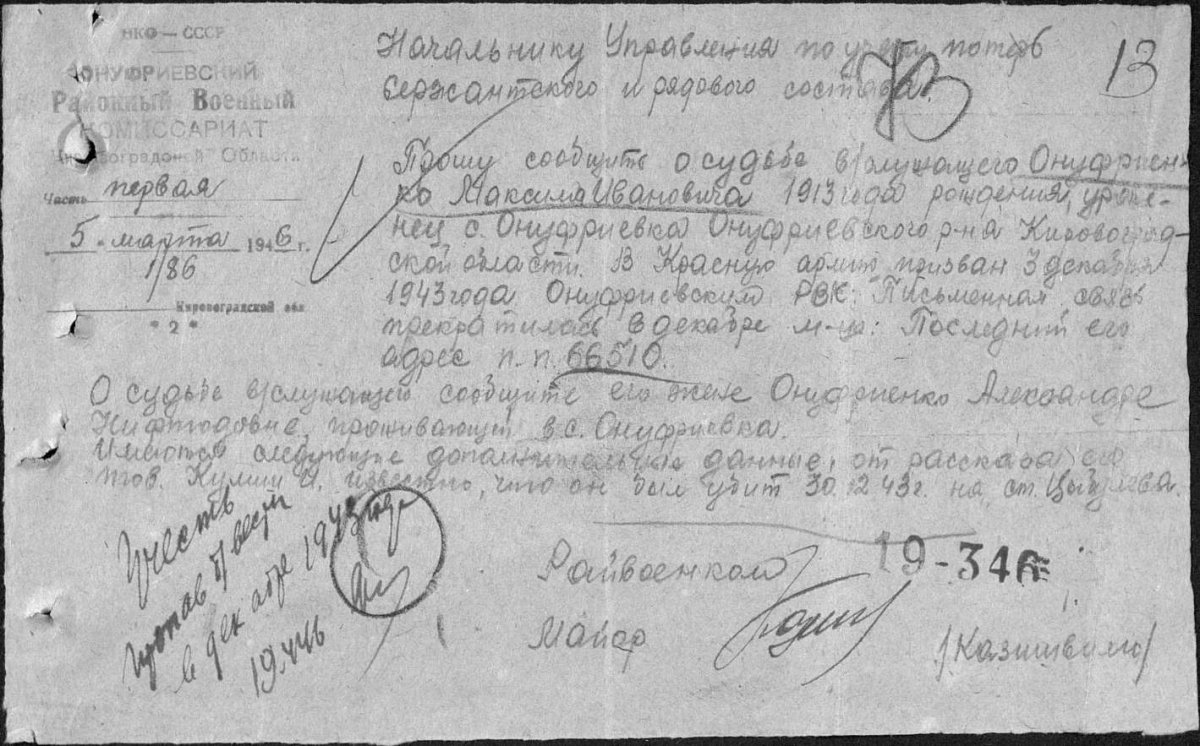 НКО — СССР
ОНУФРИЕВСКИЙ
Районный Военный
КОМИССАРИАТ
Кировоградской Области
Часть первая
5 " марта 1946 г.
1/86
Кировоградской обл
* 2 *
13
Начальнику Управления по учету потерь
сержантского и рядового состава.
Прошу сообщить о судьбе в/служащего Онуфриен-
ко Максима Ивановича 1913 года рождения, уроже-
нец с. Онуфриевка Онуфриевского р-на Кировоград-
ской области. В Красную армию призван 3 декабря
1943 года Онуфриевским РВК. Письменная связь
прекратилась в декабре м-це. Последний его
адрес п.п. 66510.
О судьбе в/служащего сообщите его жене Онуфриенко Александре
проживающей в с. Онуфриевка.
Имеются следующие дополнительные данные, от рассказа его
тов. Кулиш И. известно, что он был убит 30.12.43г. на ст. Цыбулева.
Учесть
пропав б/вести
в декабре 1943 года
19.4.46
19-346
Райвоенком
Майор
/Казишвили/